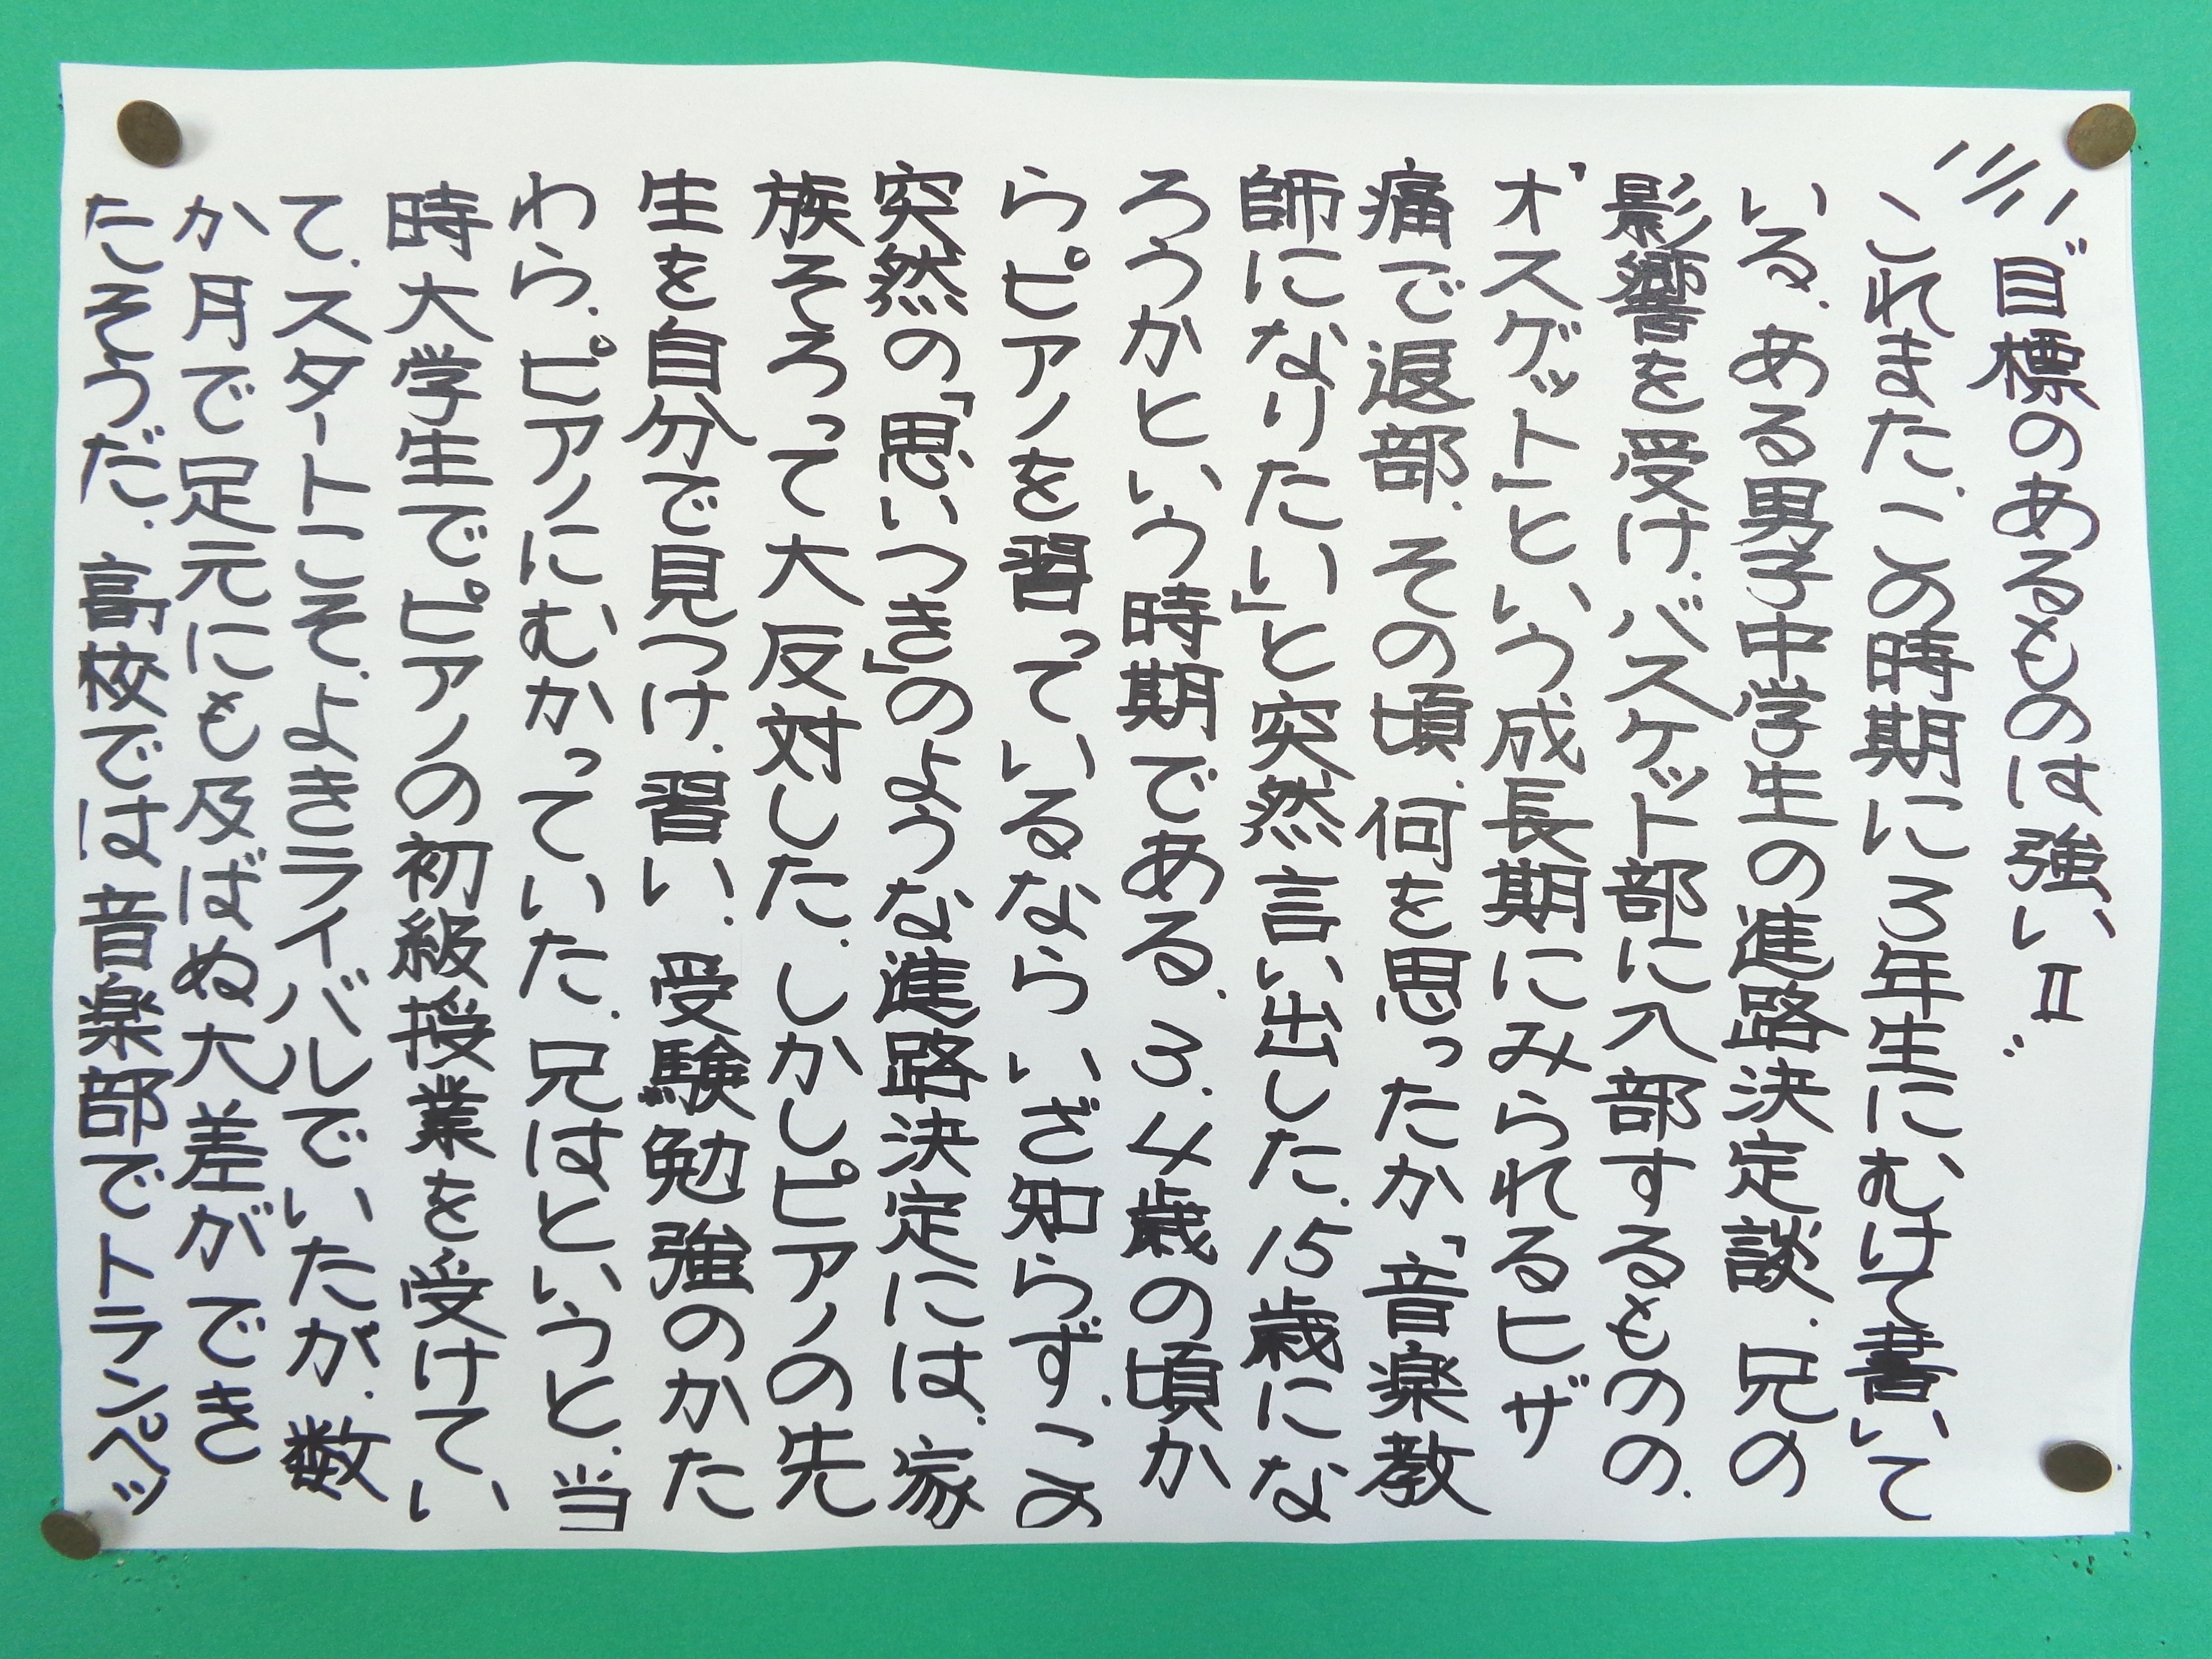 "目標のあるものは強いⅡ"
これまた、この時期に3年生にむけて書いて
いる。ある男子中学生の進路決定談。兄の
影響を受け、バスケット部に入部するものの、
「オスグット」という成長期にみられるヒザ
痛で退部。その頃、何を思ったか「音楽教
師になりたい」と突然言い出した。15歳にな
ろうかという時期である。3、4歳の頃か
らピアノを習っているならいざ知らず、この
突然の「思いつき」のような進路決定には、家
族そろって大反対した。しかしピアノの先
生を自分で見つけ、習い、受験勉強のかた
わら、ピアノにむかっていた。兄はというと、当
時大学生でピアノの初級授業を受けてい
て、スタートこそ、よきライバルでいたが、数
か月で足元にも及ばぬ大差ができ
たそうだ。高校では音楽部でトランペッ